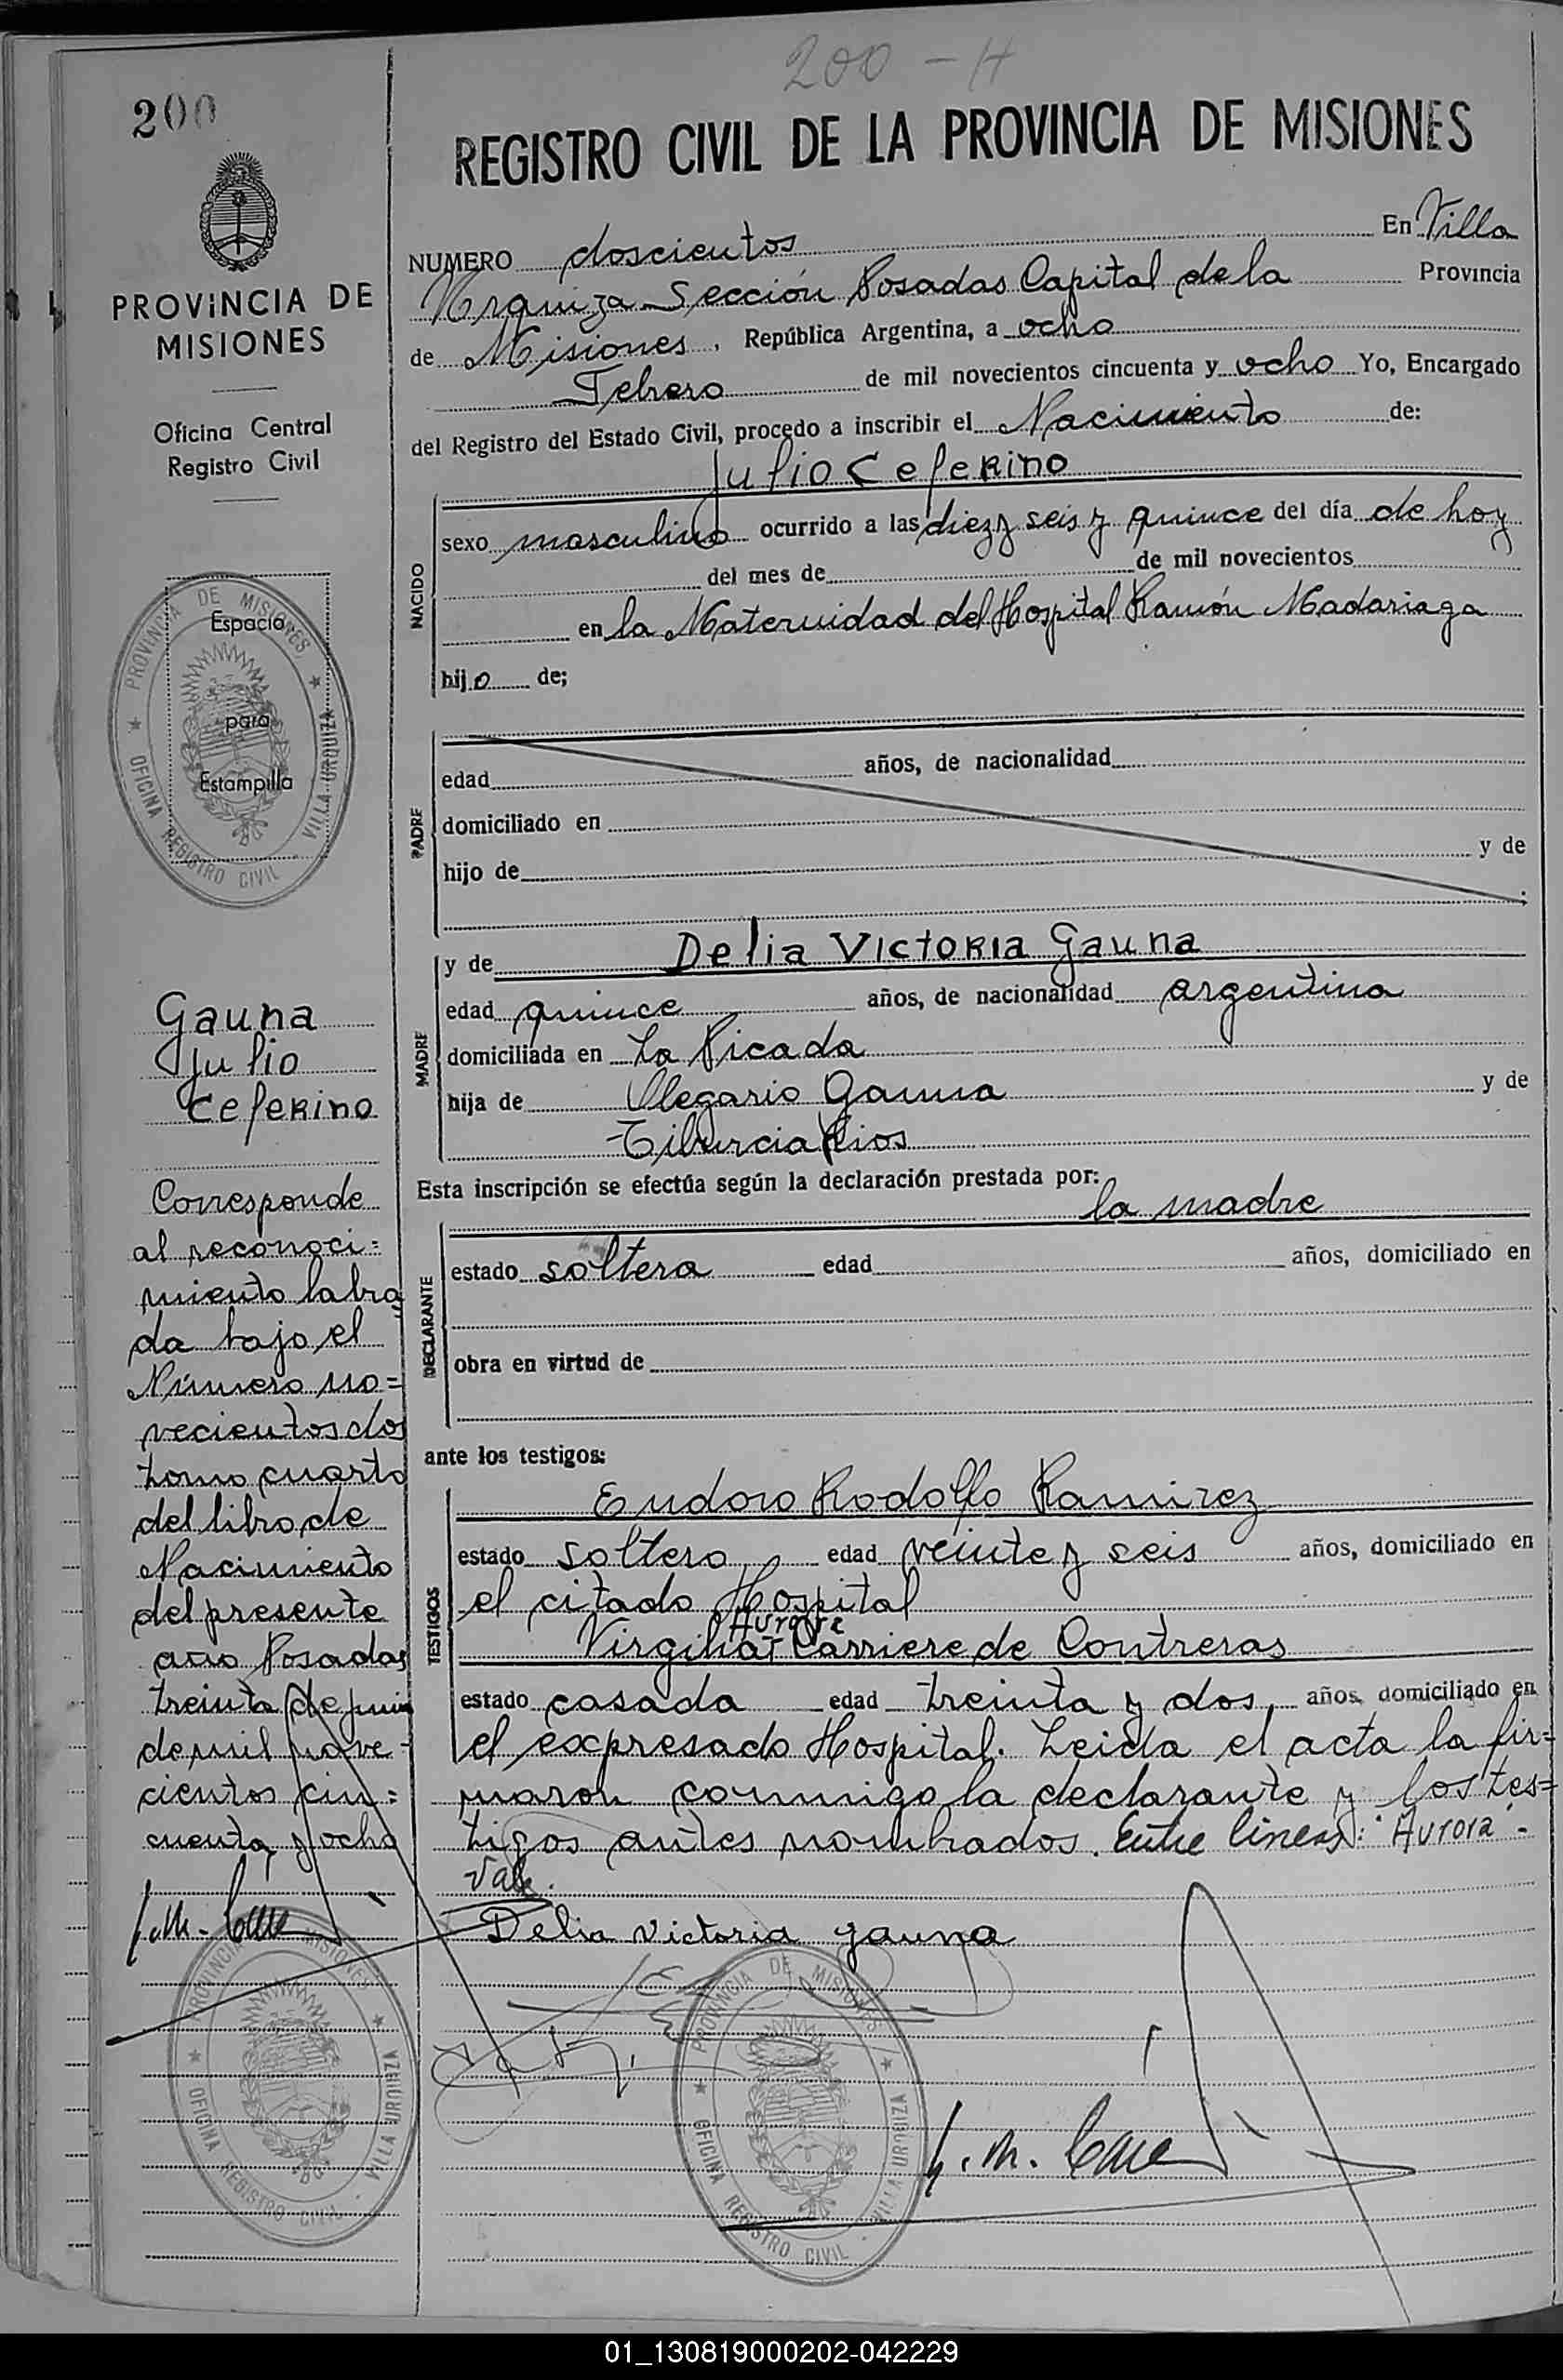 200 - H
200
REGISTRO CIVIL DE LA PROVINCIA DE MISIONES
PROVINCIA DE
MISIONES
Oficina Central
Registro Civil
Espacio
para
Estampilla
PROVINCIA DE MISIONES
OFICINA REGISTRO CIVIL VILLA URQUIZA
NUMERO doscientos En Villa
Urquiza Sección Posadas Capital de la Provincia
de Misiones, República Argentina, a ocho
Febrero de mil novecientos cincuenta y ocho Yo, Encargado
del Registro del Estado Civil, procedo a inscribir el Nacimiento de:
Julio Ceferino
NACIDO
sexo masculino ocurrido a las diez y seis y quince del día de hoy
del mes de de mil novecientos
en la Maternidad del Hospital Ramón Madariaga
hijo de;
PADRE
edad años, de nacionalidad
domiciliado en
hijo de y de
MADRE
y de Delia Victoria Gauna
edad quince años, de nacionalidad argentina
domiciliada en La Picada
hija de Olegario Gauna y de
Tiburcia Rios
Esta inscripción se efectúa según la declaración prestada por:
la madre
DECLARANTE
estado soltera edad años, domiciliado en
obra en virtud de
ante los testigos:
TESTIGOS
Eudoro Rodolfo Ramirez
estado soltero edad veinte y seis años, domiciliado en
el citado Hospital
Aurora
Virgilia Carriere de Contreras
estado casada edad treinta y dos, años domiciliado en
el expresado Hospital. Leida el acta la fir=
maron conmigo la declarante y los tes=
tigos antes nombrados. Entre lineas: "Aurora".
Vale.
Delia Victoria gauna
Gauna
Julio
Ceferino
Corresponde
al reconoci=
miento labra
da bajo el
Número no=
vecientos dos
tomo cuarto
del libro de
Nacimiento
del presente
año Posadas
treinta de junio
de mil nove=
cientos cin=
cuenta y ocho
PROVINCIA DE MISIONES
OFICINA REGISTRO CIVIL VILLA URQUIZA
PROVINCIA DE MISIONES
OFICINA REGISTRO CIVIL VILLA URQUIZA
01_130819000202-042229